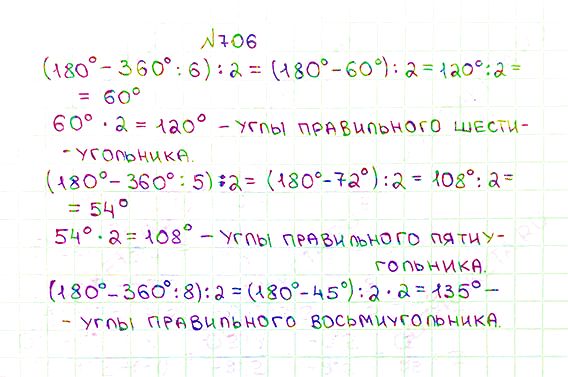 №706
(180° - 360° : 6) : 2 = (180° - 60°) : 2 = 120° : 2 =
= 60°
60° · 2 = 120° - УГЛЫ ПРАВИЛЬНОГО ШЕСТИ-
-УГОЛЬНИКА.
(180° - 360° : 5) : 2 = (180° - 72°) : 2 = 108° : 2 =
= 54°
54° · 2 = 108° - УГЛЫ ПРАВИЛЬНОГО ПЯТИУ-
ГОЛЬНИКА.
(180° - 360° : 8) : 2 = (180° - 45°) : 2 · 2 = 135° -
- УГЛЫ ПРАВИЛЬНОГО ВОСЬМИУГОЛЬНИКА.